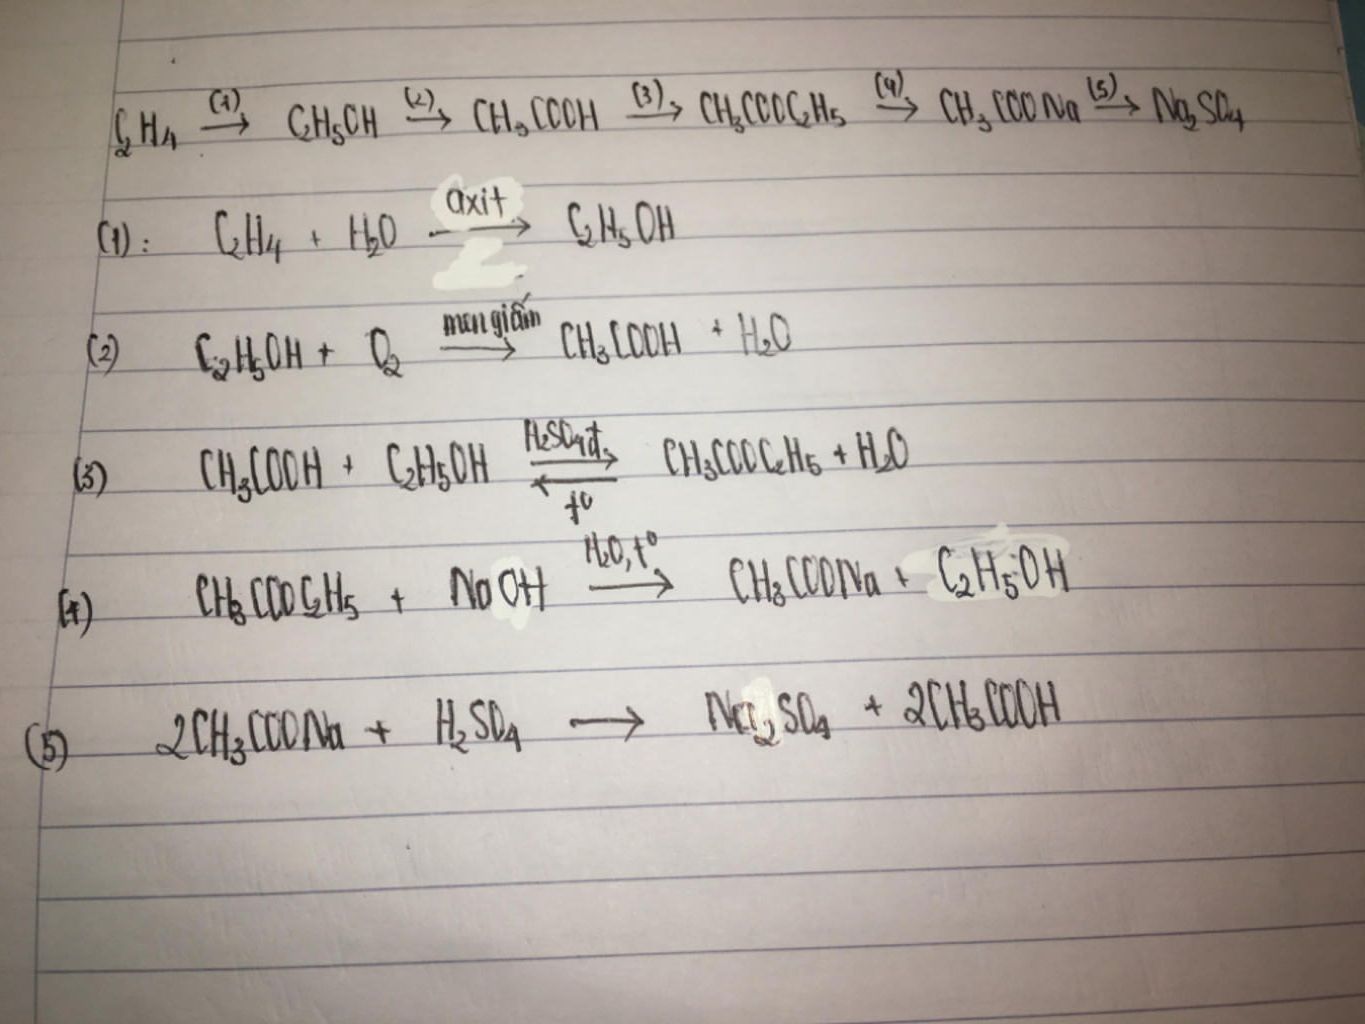 C₂H₄ (1)→ C₂H₅OH (2)→ CH₃COOH (3)→ CH₃COOC₂H₅ (4)→ CH₃COONa (5)→ Na₂SO₄
(1): C₂H₄ + H₂O axit→ C₂H₅OH
(2) C₂H₅OH + O₂ men giấm→ CH₃COOH + H₂O
(3) CH₃COOH + C₂H₅OH H₂SO₄đ, t⁰ ⇌ CH₃COOC₂H₅ + H₂O
(4) CH₃COOC₂H₅ + NaOH H₂O, t⁰→ CH₃COONa + C₂H₅OH
(5) 2CH₃COONa + H₂SO₄ → Na₂SO₄ + 2CH₃COOH